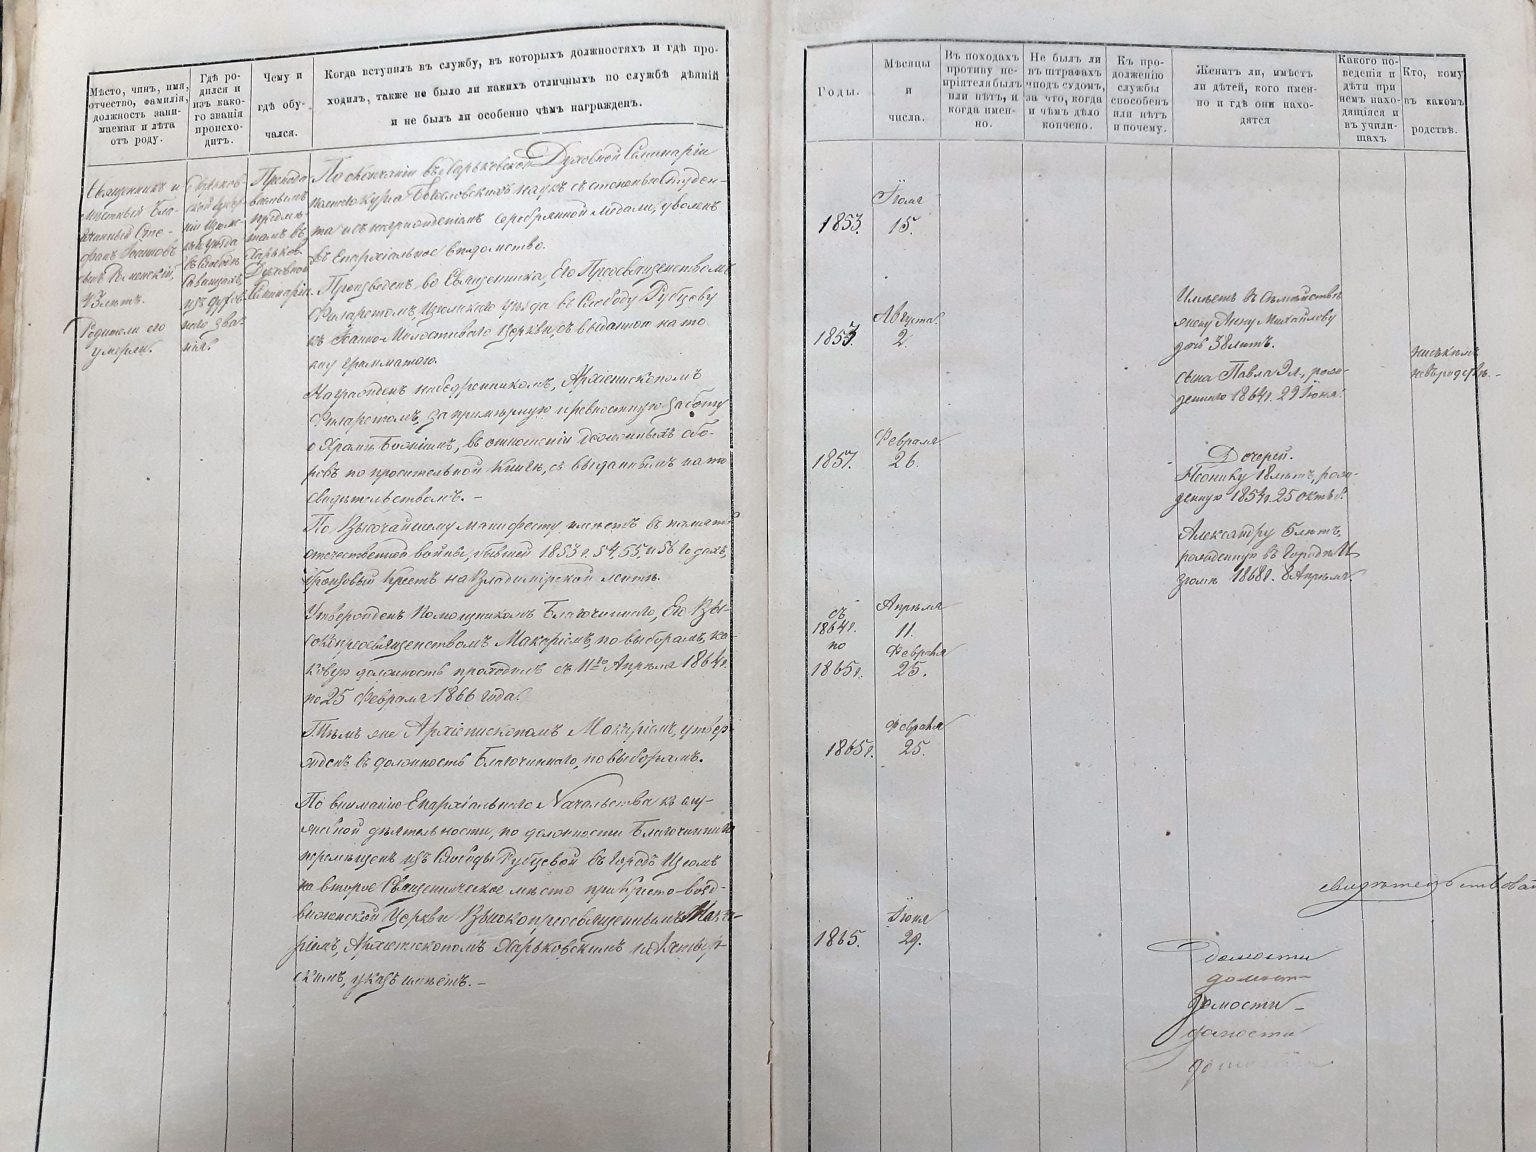 Мѣсто, чинъ, имя,
отчество, фамилія,
должность зани-
маемая и лѣта
отъ роду.
Гдѣ ро-
дился и
изъ како-
го званія
происхо-
дитъ.
Чему и
гдѣ обу-
чался.
Когда вступилъ въ службу, въ которыхъ должностяхъ и гдѣ про-
ходилъ, также не было ли какихъ отличныхъ по службѣ дѣяній
и не былъ ли особенно чѣмъ награжденъ.
Священникъ и
мѣстный Бла-
гочинный Сте-
фанъ Іоанновъ
сынъ
43 лѣтъ.
Родители его
умерли.
Харьков-
ской Губер-
ніи Изюм-
скаго уѣзда
въ Слободѣ
изъ духов-
наго зва-
нія.
Препода-
ваемымъ
предме-
тамъ въ
Харьков.
Духовной
Семинаріи.
По окончаніи въ Харьковской Духовной Семинаріи
полнаго курса Богословскихъ наукъ съ степенью Студен-
та и съ награжденіемъ серебрянной медали, уволенъ
въ Епархіальное вѣдомство.
Произведенъ во Священника, Его Преосвященствомъ
Филаретомъ, Изюмскаго уѣзда въ Слободу Рубцову
къ Іоанно-Милостивого Церкви, съ выданною на то
ему грамматою.
Награжденъ набедренникомъ, Архіепископомъ
Филаретомъ, за примѣрную и ревностную заботу
о Храмѣ Божіимъ, въ отношеніи должныхъ сбо-
ровъ по просительной книгѣ, съ выданнымъ на то
свидѣтельствомъ. –
По Высочайшему манифесту имѣетъ въ память
отечественной войны, бывшей 1853 г. 54, 55 и 56 годахъ,
бронзовый Крестъ на Владимірской лентѣ.
Утвержденъ Помощникомъ Благочиннаго, Его Вы-
сокопреосвященствомъ Макаріемъ, по выборамъ, ка-
ковую должность проходилъ съ 11го Апрѣля 1864 г.
по 25 Февраля 1866 года.
Тѣмъ же Архіепископомъ Макаріемъ, утвер-
жденъ въ должность Благочиннаго, по выборамъ.
По вниманію Епархіальнаго Начальства къ слу-
жебной дѣятельности, по должности Благочиннаго
перемѣщенъ изъ Слободы Рубцевой въ городъ Изюмъ
на второе Священническое мѣсто при Кресто-возд-
виженской Церкви Высокопреосвященнымъ Мака-
ріемъ, Архіепископомъ Харьковскимъ и Ахтыр-
скимъ, указъ имѣетъ. –
Годы.
Мѣсяцы
и
числа.
Въ походахъ
противу не-
пріятеля былъ
или нѣтъ, и
когда имен-
но.
Не былъ ли
въ штрафахъ
подъ судомъ,
за что, когда
и чѣмъ дѣло
кончено.
Къ про-
долженію
службы
способенъ
или нѣтъ
и почему.
Женатъ ли, имѣетъ
ли дѣтей, кого имен-
но и гдѣ они нахо-
дятся
Какого по-
веденія и
дѣти при
немъ нахо-
дящіяся и
въ учили-
щахъ
Кто, кому,
въ какомъ
родствѣ.
1853. Іюля 15.
1853. Августа 2.
1857. Февраля 26.
съ 1864 г. Апрѣля 11.
по 1865 г. Февраля 25.
1865 г. Февраля 25.
1865. Іюня 29.
Имѣетъ въ Семействѣ
жену Анну Михайлову
дочь 38 лѣтъ.
сына Павла Эл., рож-
деннаго 1864 г. 29 Іюня.
Дочерей.
Леониду 18 лѣтъ, рож-
денную 1854 г. 25 октяб.
Александру 5 лѣтъ,
рожденную въ городѣ И-
зюмѣ 1868 г. 8 Апрѣля.
ни съ кѣмъ
не въ родствѣ. –
домости
домост-
домости –
домости